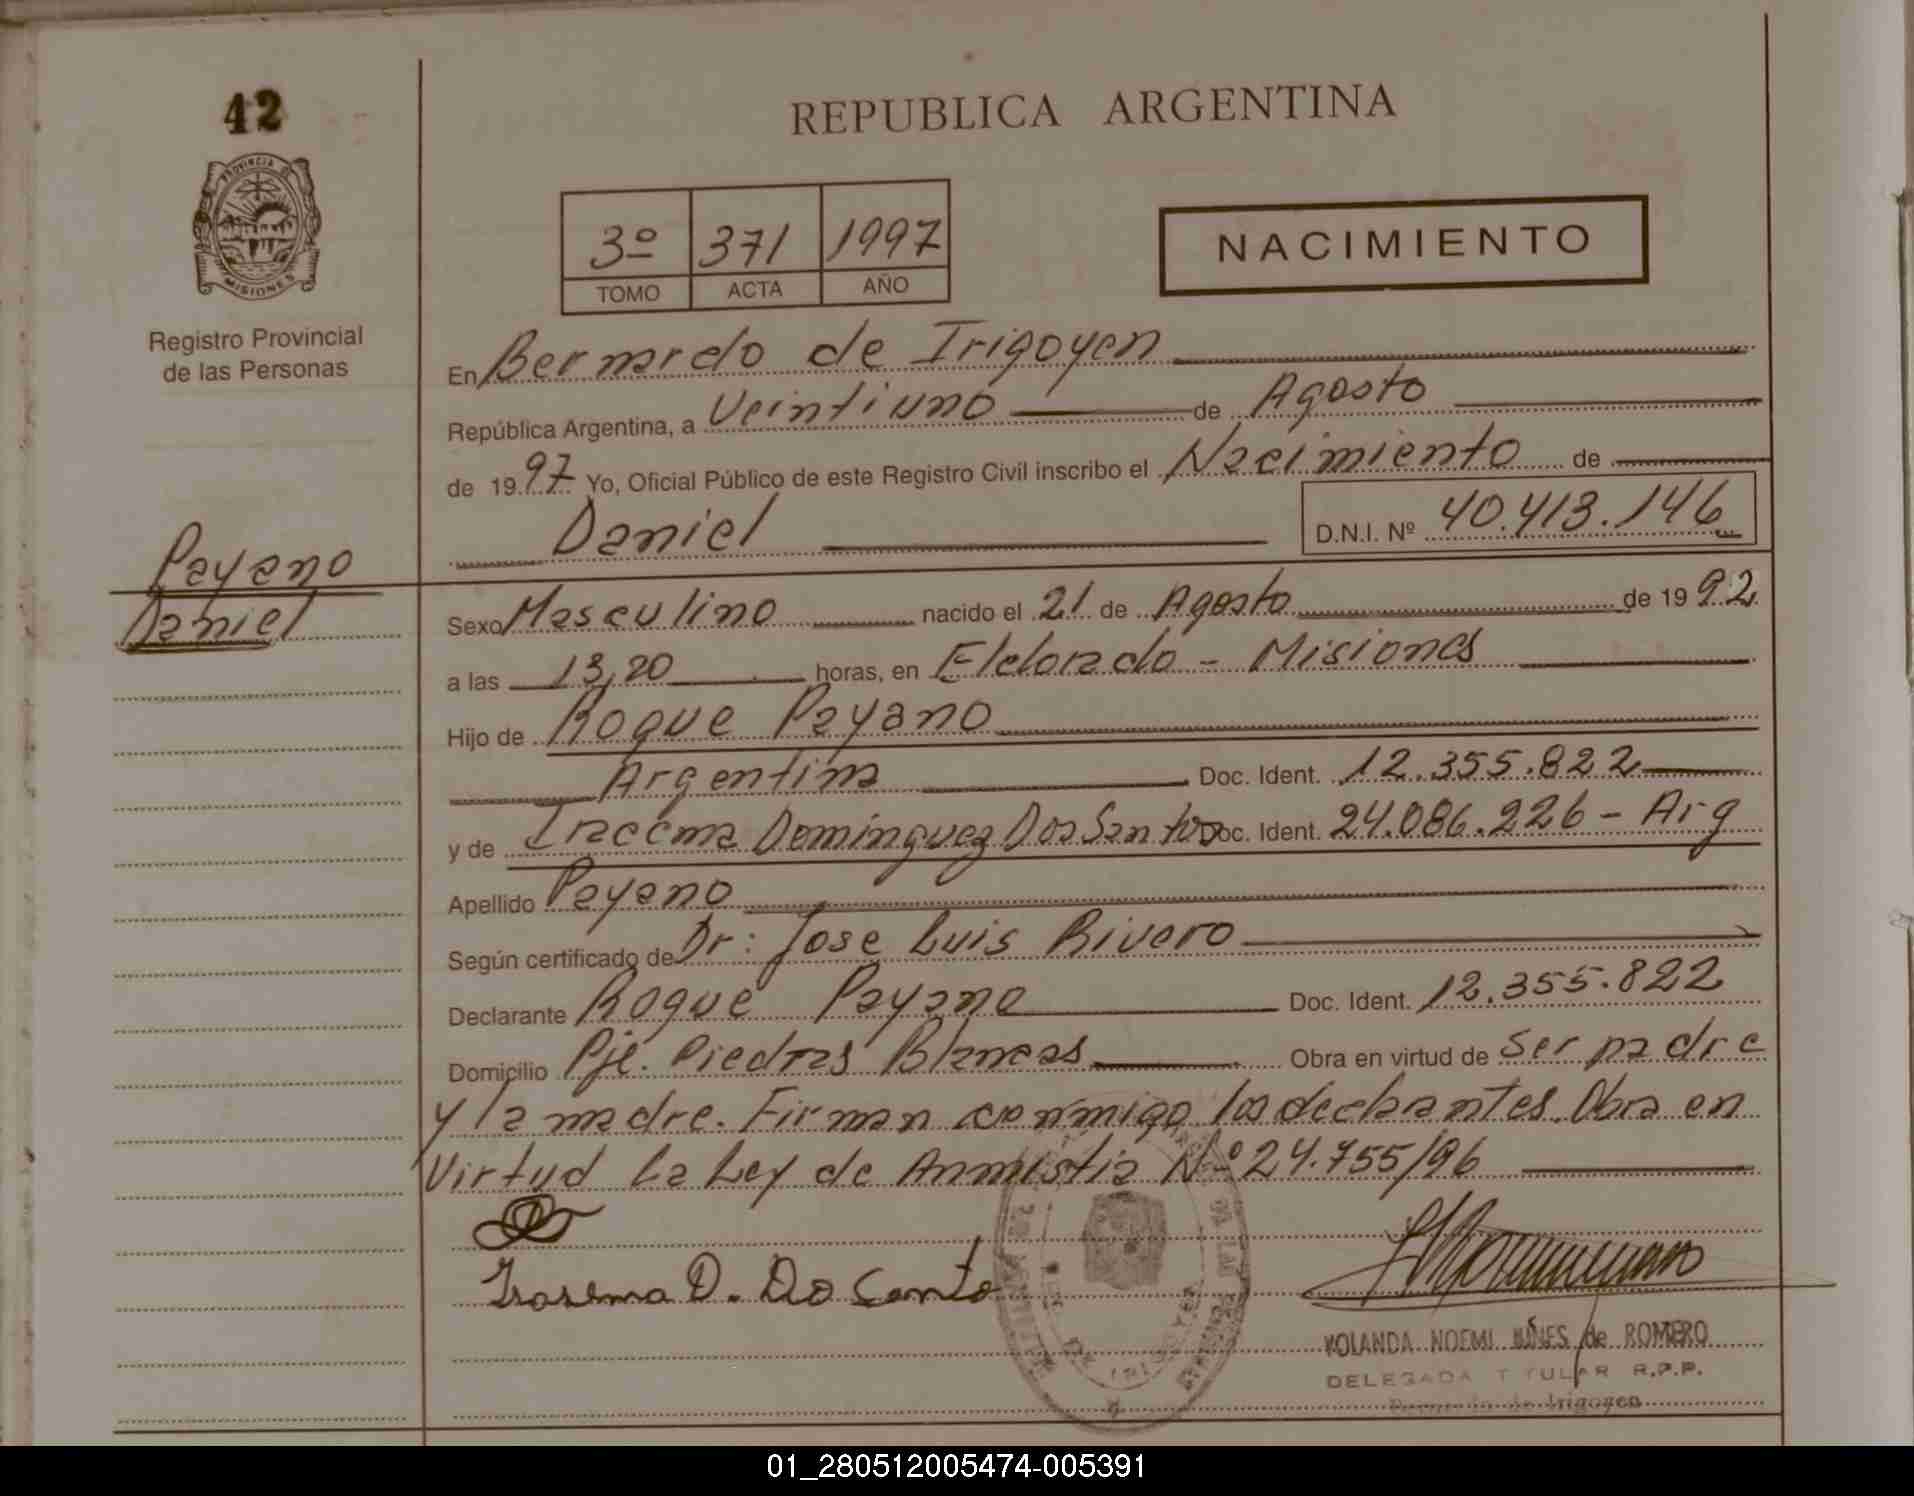 42
PROVINCIA DE
MISIONES
Registro Provincial
de las Personas
REPUBLICA ARGENTINA
3º 371 1997
TOMO ACTA AÑO
NACIMIENTO
En Bernardo de Irigoyen
República Argentina, a Veintiuno de Agosto
de 1997 Yo, Oficial Público de este Registro Civil inscribo el Nacimiento de
Daniel D.N.I. Nº 40.413.146
Payano
Daniel
Sexo Masculino nacido el 21 de Agosto de 1992
a las 13,20 horas, en Eldorado - Misiones
Hijo de Roque Payano
Argentina Doc. Ident. 12.355.822
y de Iracema Dominguez Dos Santos Doc. Ident. 24.086.226 - Arg
Apellido Payano
Según certificado de Dr: Jose Luis Rivero
Declarante Roque Payano Doc. Ident. 12.355.822
Domicilio Pje. Piedras Blancas Obra en virtud de Ser padre
y la madre. Firman conmigo los declarantes. Obra en
Virtud la Ley de Anmistia Nº 24.755/96
Irasema D. Do Santo
YOLANDA NOEMI NUÑES de ROMERO
DELEGADA TITULAR R.P.P.
Bernardo de Irigoyen
01_280512005474-005391